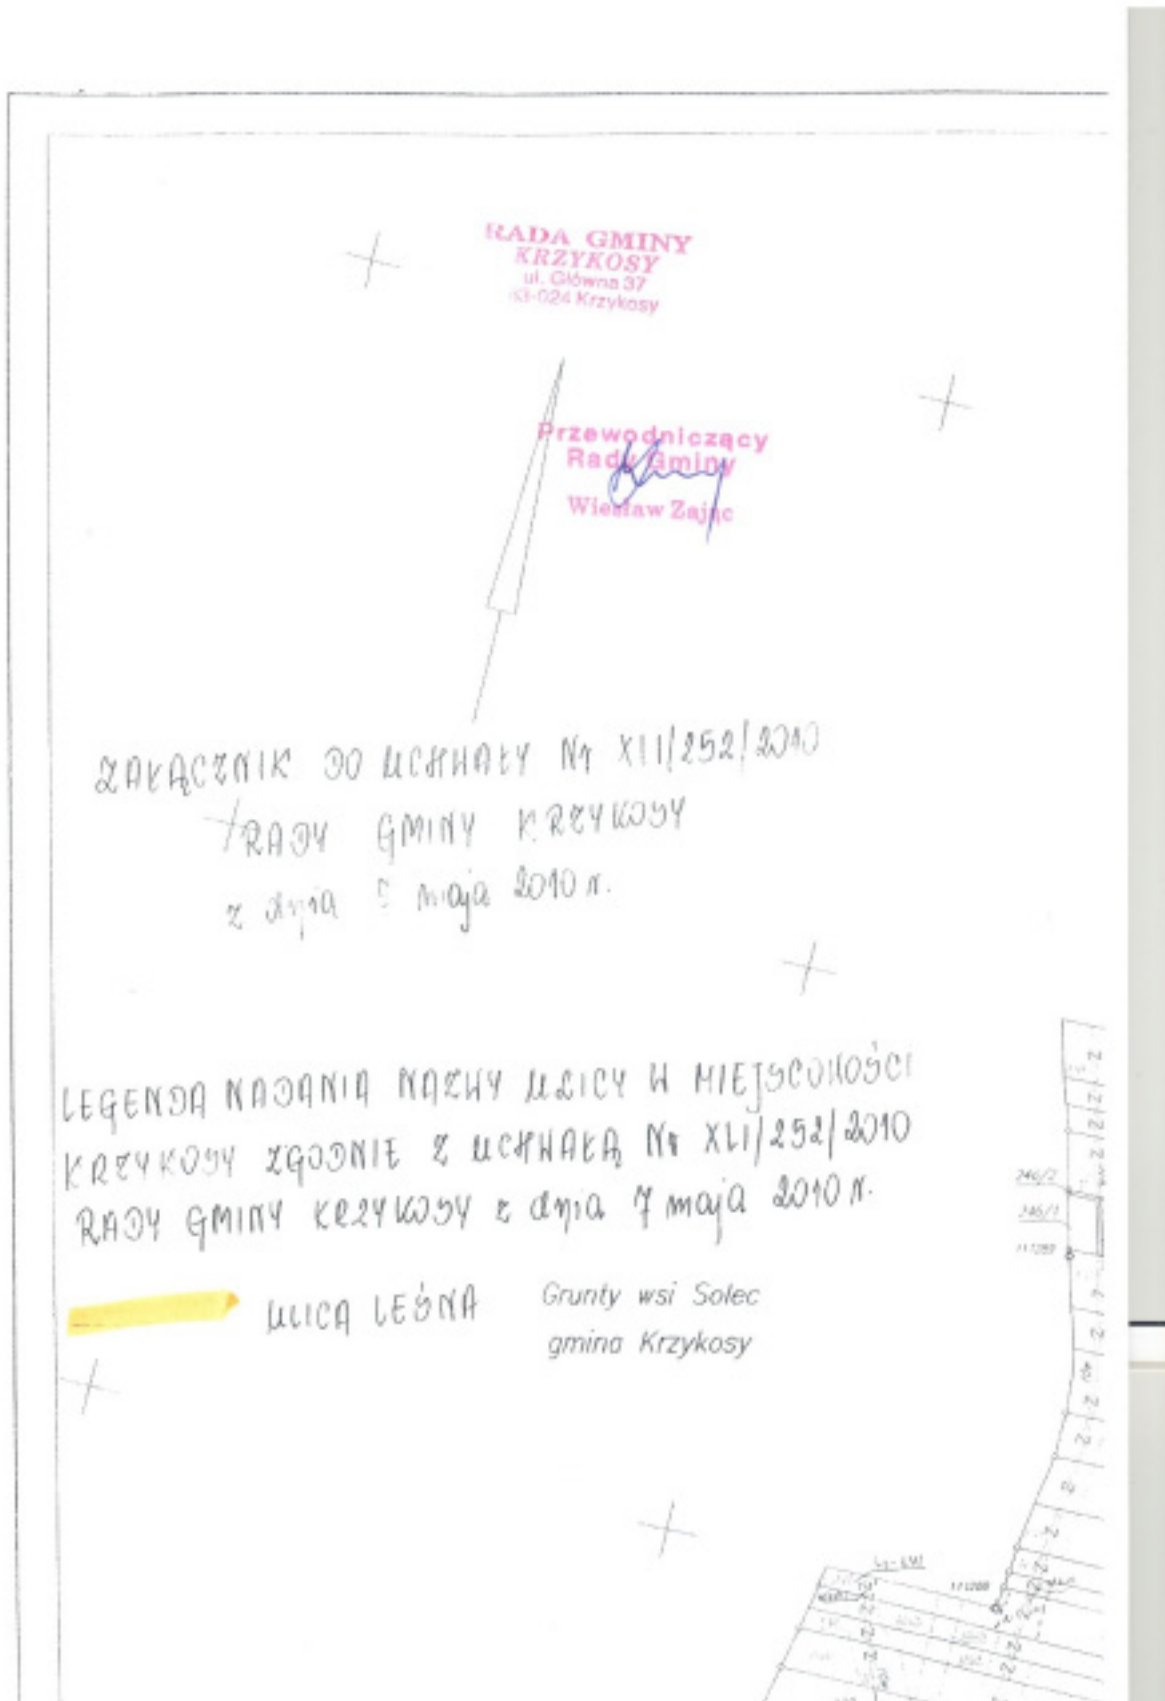 RADA GMINY
KRZYKOSY
ul. Główna 37
63-024 Krzykosy
Przewodniczący
Rady Gminy
Wiesław Zając
ZAŁĄCZNIK DO UCHWAŁY Nr XLI/252/2010
RADY GMINY KRZYKOSY
z dnia 7 maja 2010 r.
LEGENDA NADANIA NAZWY ULICY W MIEJSCOWOŚCI
KRZYKOSY ZGODNIE Z UCHWAŁĄ Nr XLI/252/2010
RADY GMINY KRZYKOSY z dnia 7 maja 2010 r.
ULICA LEŚNA
Grunty wsi Solec
gmina Krzykosy
246/2
246/1